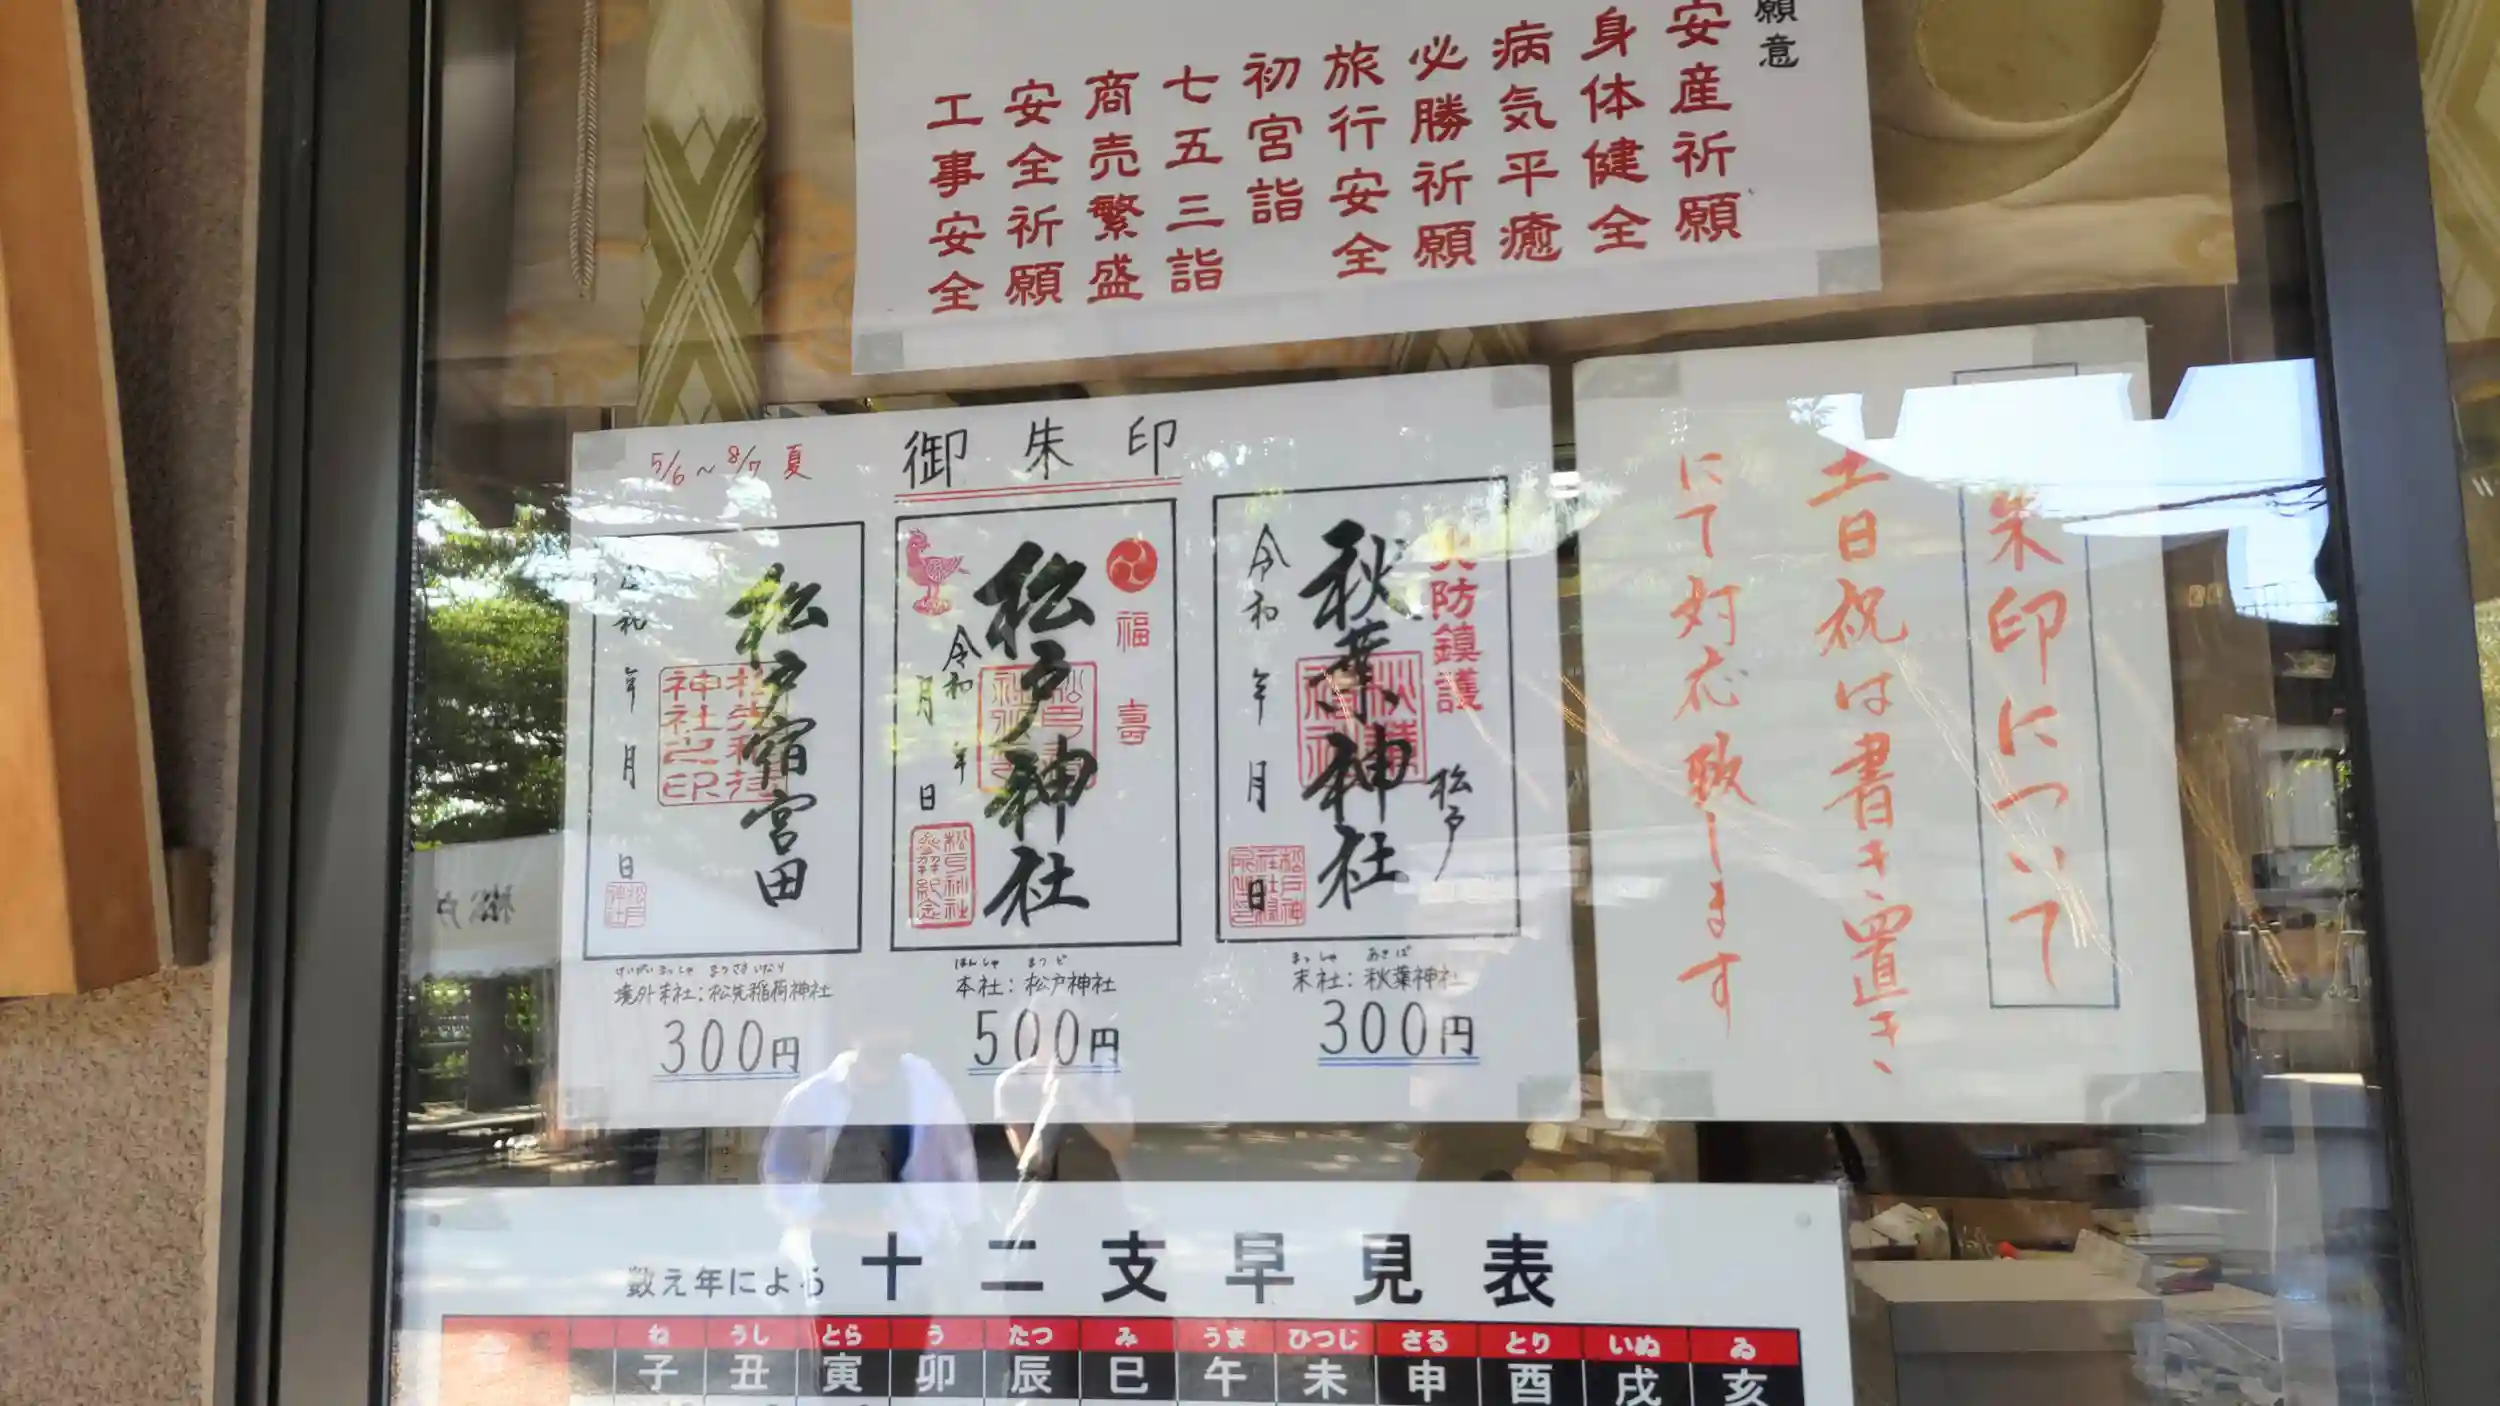 願意
安産祈願
身体健全
病気平癒
必勝祈願
旅行安全
初宮詣
七五三詣
商売繁盛
安全祈願
工事安全
5/6～8/7 夏
御朱印
火防鎮護
秋葉神社
松戸
令和 年 月 日
福寿
松戸神社
令和 年
月 日
松戸宿宮田
年 月 日
まっしゃ あきば
末社：秋葉神社
300円
ほんしゃ まつど
本社：松戸神社
500円
けいがいまっしゃ まつさきいなり
境外末社：松先稲荷神社
300円
朱印について
土日祝は書き置き、
にて対応致します
数え年による 十二支早見表
ね うし とら う たつ み うま ひつじ さる とり いぬ ゐ
子 丑 寅 卯 辰 巳 午 未 申 酉 戌 亥